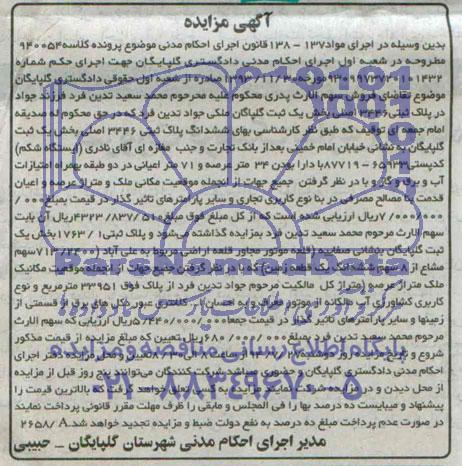 آگهی مزایده
بدین وسیله در اجرای مواد ۱۳۷- ۱۳۸ قانون اجرای احکام مدنی موضوع پرونده کلاسه ۹۴۰۰۵۴
مطروحه در شعبه اول اجرای احکام مدنی دادگستری گلپایگان جهت اجرای حکم شماره
مورخه ۱۳۹۳/۱۱/۳۰ صادره از شعبه اول حقوقی دادگستری گلپایگان
موضوع تقاضای فروش سهم الارث پدری محکوم علیه مرحوم محمد سعید تدین فرد فرزند جواد
در پلاک ثبتی ۳۴۴۶ اصلی بخش یک ثبت گلپاگان ملکی جواد تدین فرد که در حق محکوم له صدیقه
امام جمعه ای توقیف که طبق نظر کارشناسی بهای ششدانگ پلاک ثبتی ۳۴۴۶ اصلی بخش یک ثبت
گلپایگان به نشانی خیابان امام خمینی بعداز بانک تجارت و جنب مغازه ای آقای نادری (ایستگاه شکم)
کدپستی ۶۵۹۳۳-۸۷۷۱۹ با دارا بودن ۳۴ متر عرصه و ۷۱ متر اعیانی در دو طبقه بهمراه امتیازات
آب و برق و گاز و با در نظر گرفتن جمیع جهات از انجمله موقعیت مکانی ملک و متراژ عرصه و اعیان
و مصالح مصرفی در بنا نوع کاربری تجاری و سایر پارامترهای تاثیر گذار در قیمت بمبلغ
ریال ارزیابی شده است که از کل مبلغ فوق مبلغ ریال آن بابت
سهم الارث مرحوم محمد سعید تدین فرد بمزایده گذاشته می‌شود و پلاک ثبتی ۱۷۶۳/۱ بخش یک
ثبت گلپایگان بنشانی سفیابه (قلعه موتور مجاور قلعه اراضی مربوط به علی آباد سهم
مشاع از ۸ سهم ششدانگ یک قطعه زمین) که با در نظر گرفتن جمیع جهات از انجمله موقعیت مکانیک
ملک متراژ عرصه (متراژ کل مالکیت مرحوم جواد تدین فرد از پلاک فوق ۳۳۹۵۱ مترمربع و نوع
کاربری کشاورزی آب مالکانه از موتور عبور دکل های برق از قسمتی از
زمینها و سایر پارامترهای تاثیر گذار در قیمت جمعا ریال ارزیابی که سهم الارث
مرحوم محمد سعید تدین فرد بمبلغ ریال تعیین که مبلغ مزایده از قیمت مذکور
شروع و تاریخ مزایده روز محل مزایده دفتر اجرای
احکام مدنی دادگستری گلپایگان و حضوری میباشد شرکت کنندگان می‌توانند پنج روز قبل از مزایده
از محل دیدن و در مزایده شرکت نمایند مزایده با کسی است خواهد گرفت که بالاترین قیمت را
پیشنهاد و میبایست ده درصد بها را فی المجلس و مابقی را ظرف مهلت مقرر قانونی پرداخت نمایند
در صورت عدم پرداخت مبلغ ده درصد به نفع دولت ضبط و مزایده تجدید خواهد شد. ۲۶۵۸/A
مدیر اجرای احکام مدنی شهرستان گلپایگان - حبیبی
ParsNamadData
پایگاه اطلاع رسانی مناقصه و مزایده
۰۲۱-۸۸۳۴۹۶۷۰-۵